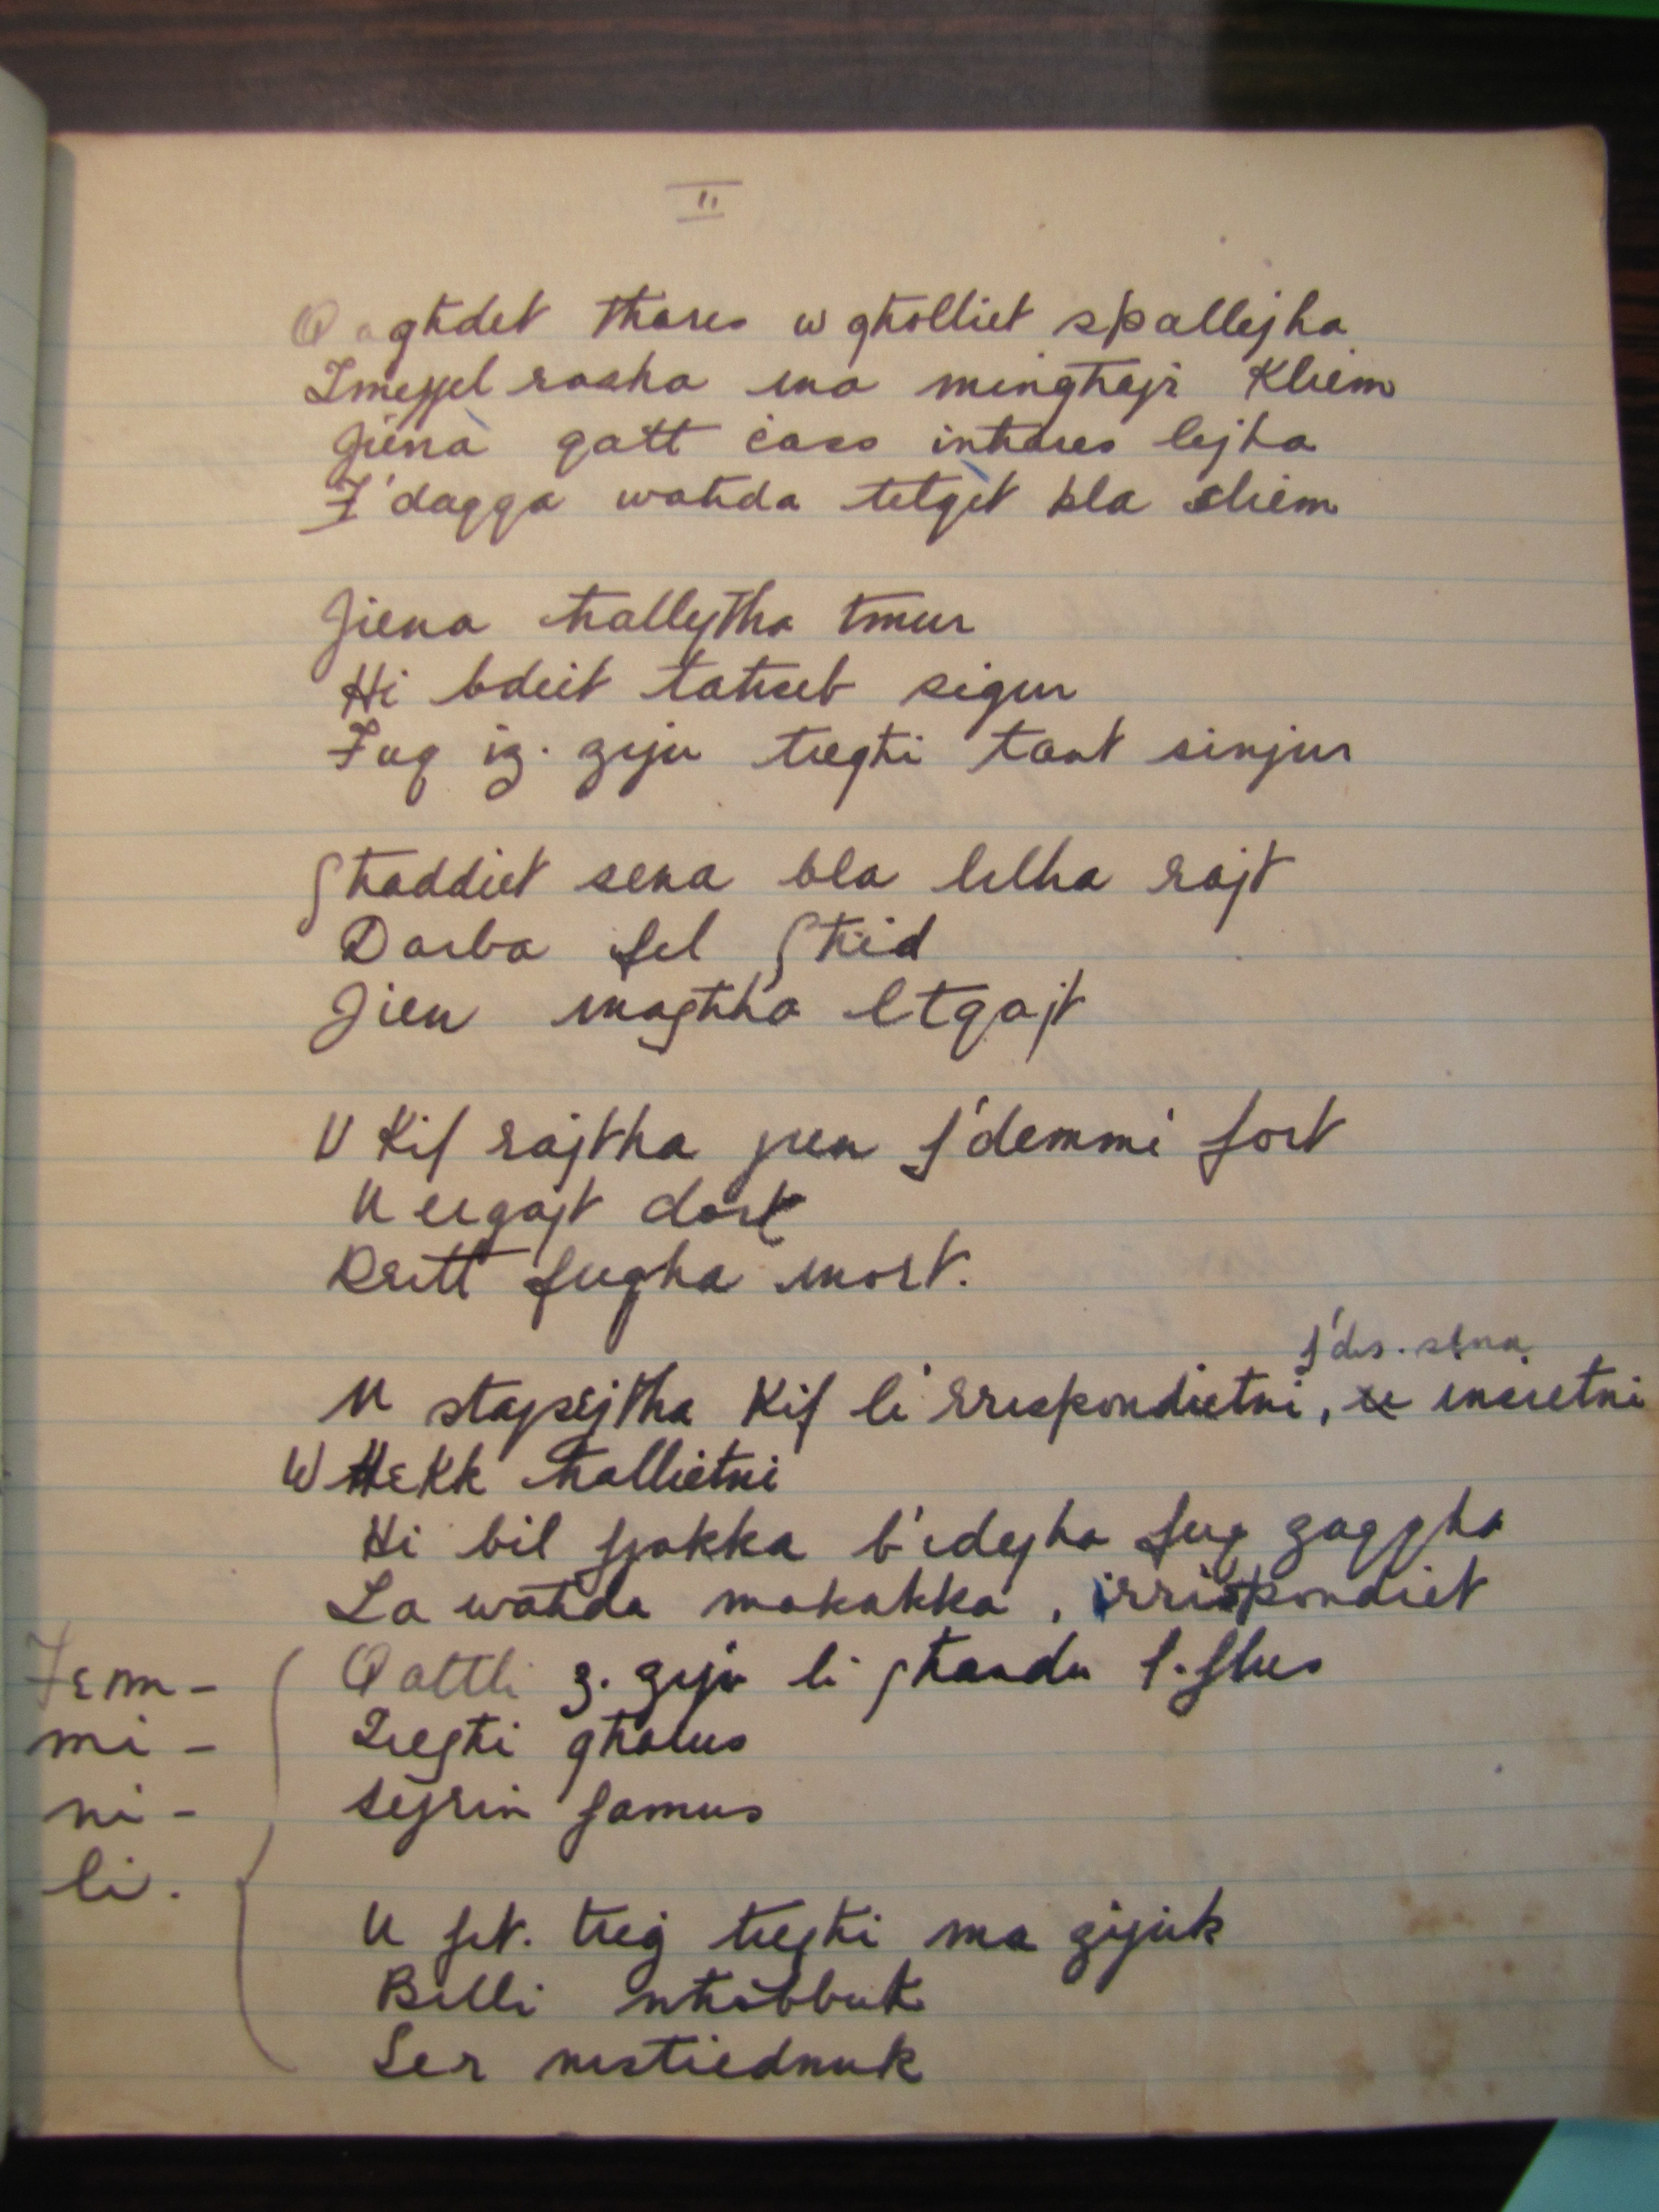 II
Qagħdet tħares w għolliet spallejha
Imejjel rasha ma mingħajr Kliem
Jiena qatt ċass inħares lejha
F'daqqa waħda telqet bla sliem
Jiena ħallejtha tmur
Hi bdiet taħseb sigur
Fuq iz. ziju tiegħi tant sinjur
Għaddiet sena bla lilha rajt
Darba fel Għid
Jien magħha ltqajt
U Kif rajtha jien f'demmi fort
U erġajt dort
Kritt fuqha mort.
f'dis. sena
U staqsejtha Kif li rrispondietni, insietni
W Hekk ħallietni
Hi bil fjakka b'idejha fuq żaqqha
La waħda makakka, irrispondiet
Qaltli z. ziju li għandu l.flus
Tiegħi għarus
sejrin famus
U int. trid tiegħi ma zijuk
Billi nħobbuk
Ser nistiednuk
Fem-
mi-
ni-
li.